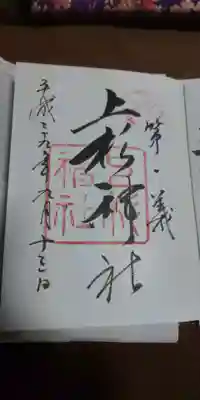 第一義
上杉神社
平成二十九年九月十三日